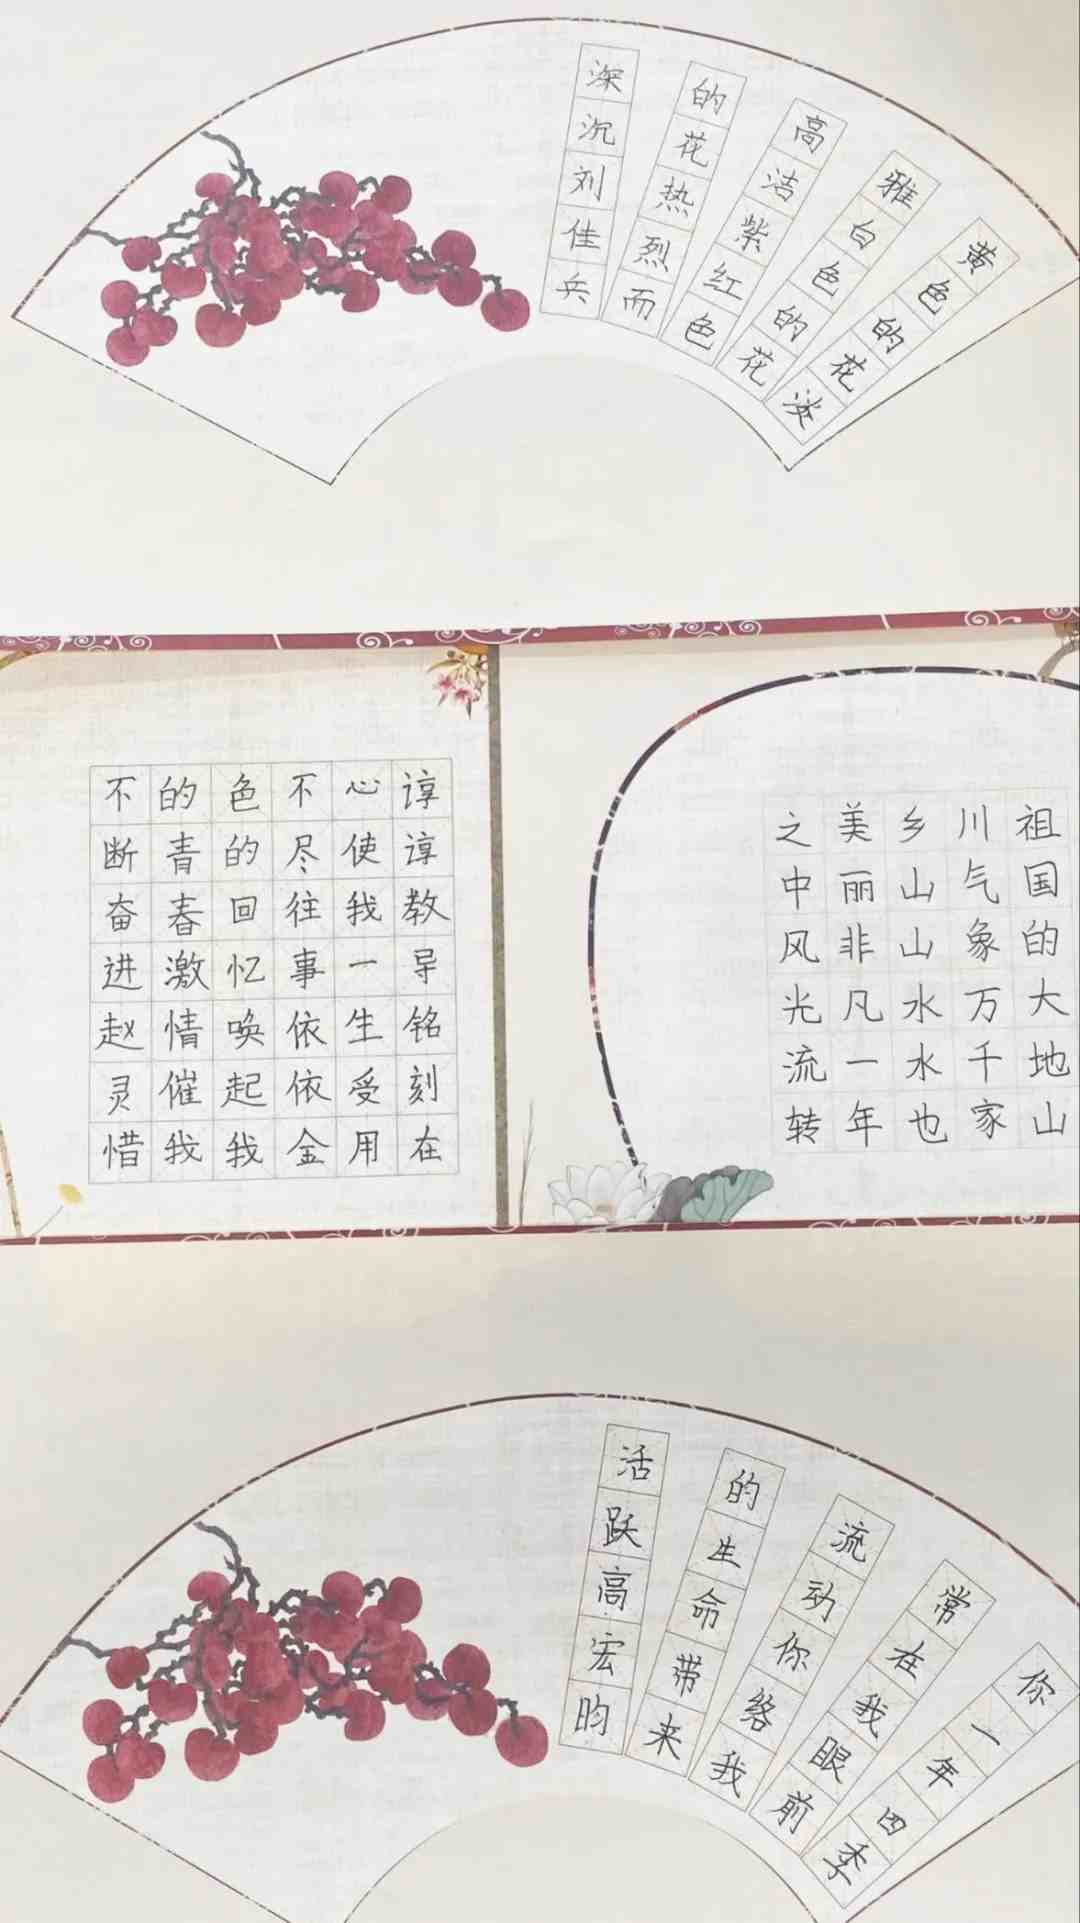 黄色的花淡
雅白色的花
高洁紫红色
的花热烈而
深沉刘佳兵
谆谆教导铭刻在
心使我一生受用
不尽往事依依金
色的回忆唤起我
的青春激情催我
不断奋进赵灵惜
祖国的大地山
川气象万千家
乡山山水水也
美丽非凡一年
之中风光流转
你一年四季
常在我眼前
流动你给我
的生命带来
活跃高宏昀